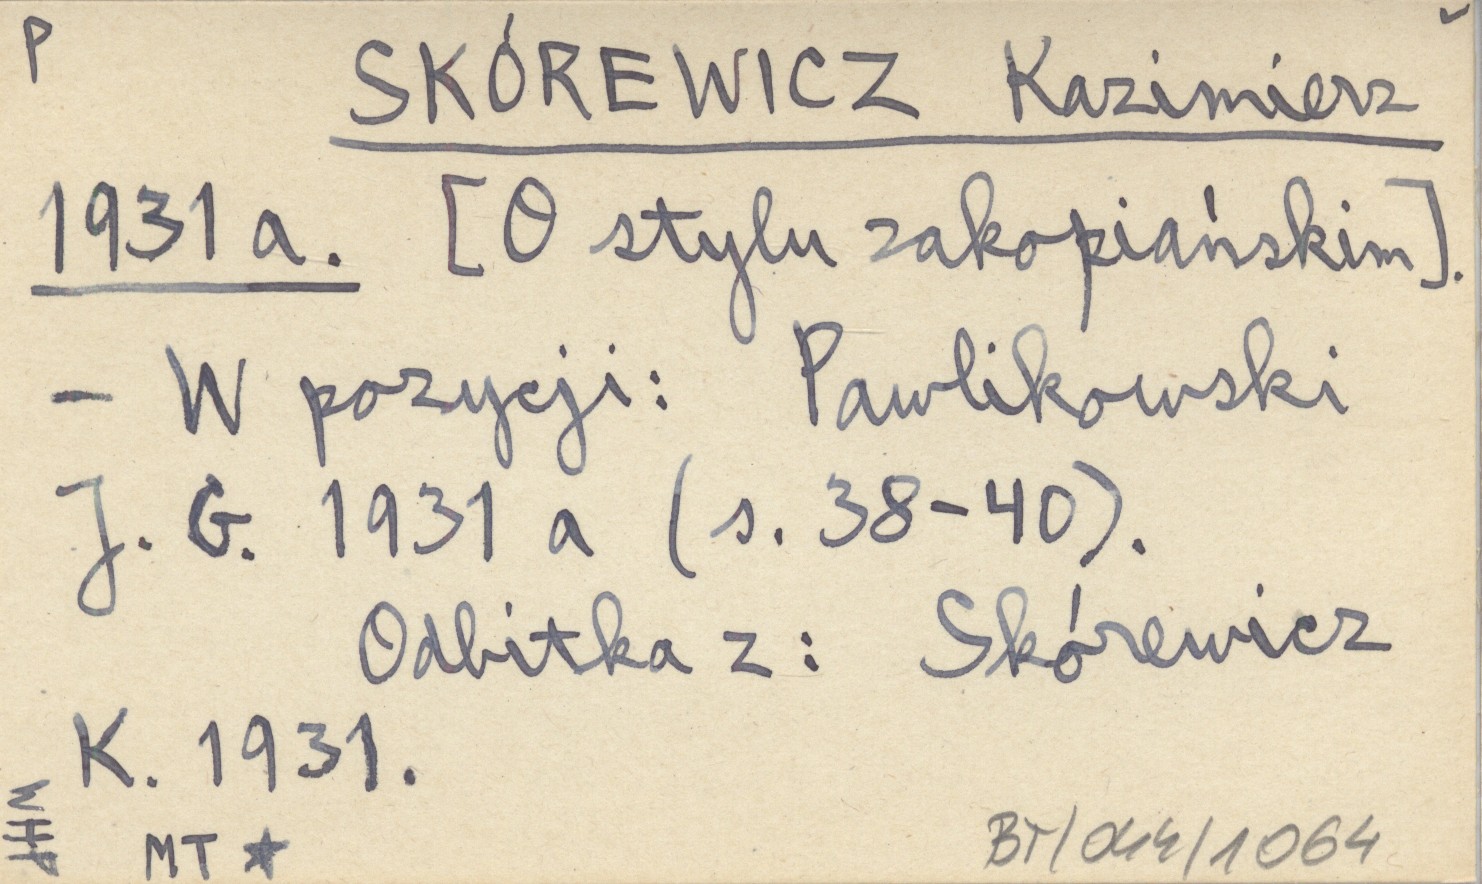 P
SKÓREWICZ Kazimierz
1931 a. [O stylu zakopiańskim].
– W pozycji: Pawlikowski
J. G. 1931 a (s. 38–40).
Odbitka z: Skórewicz
K. 1931.
MT ★
BT/044/1064